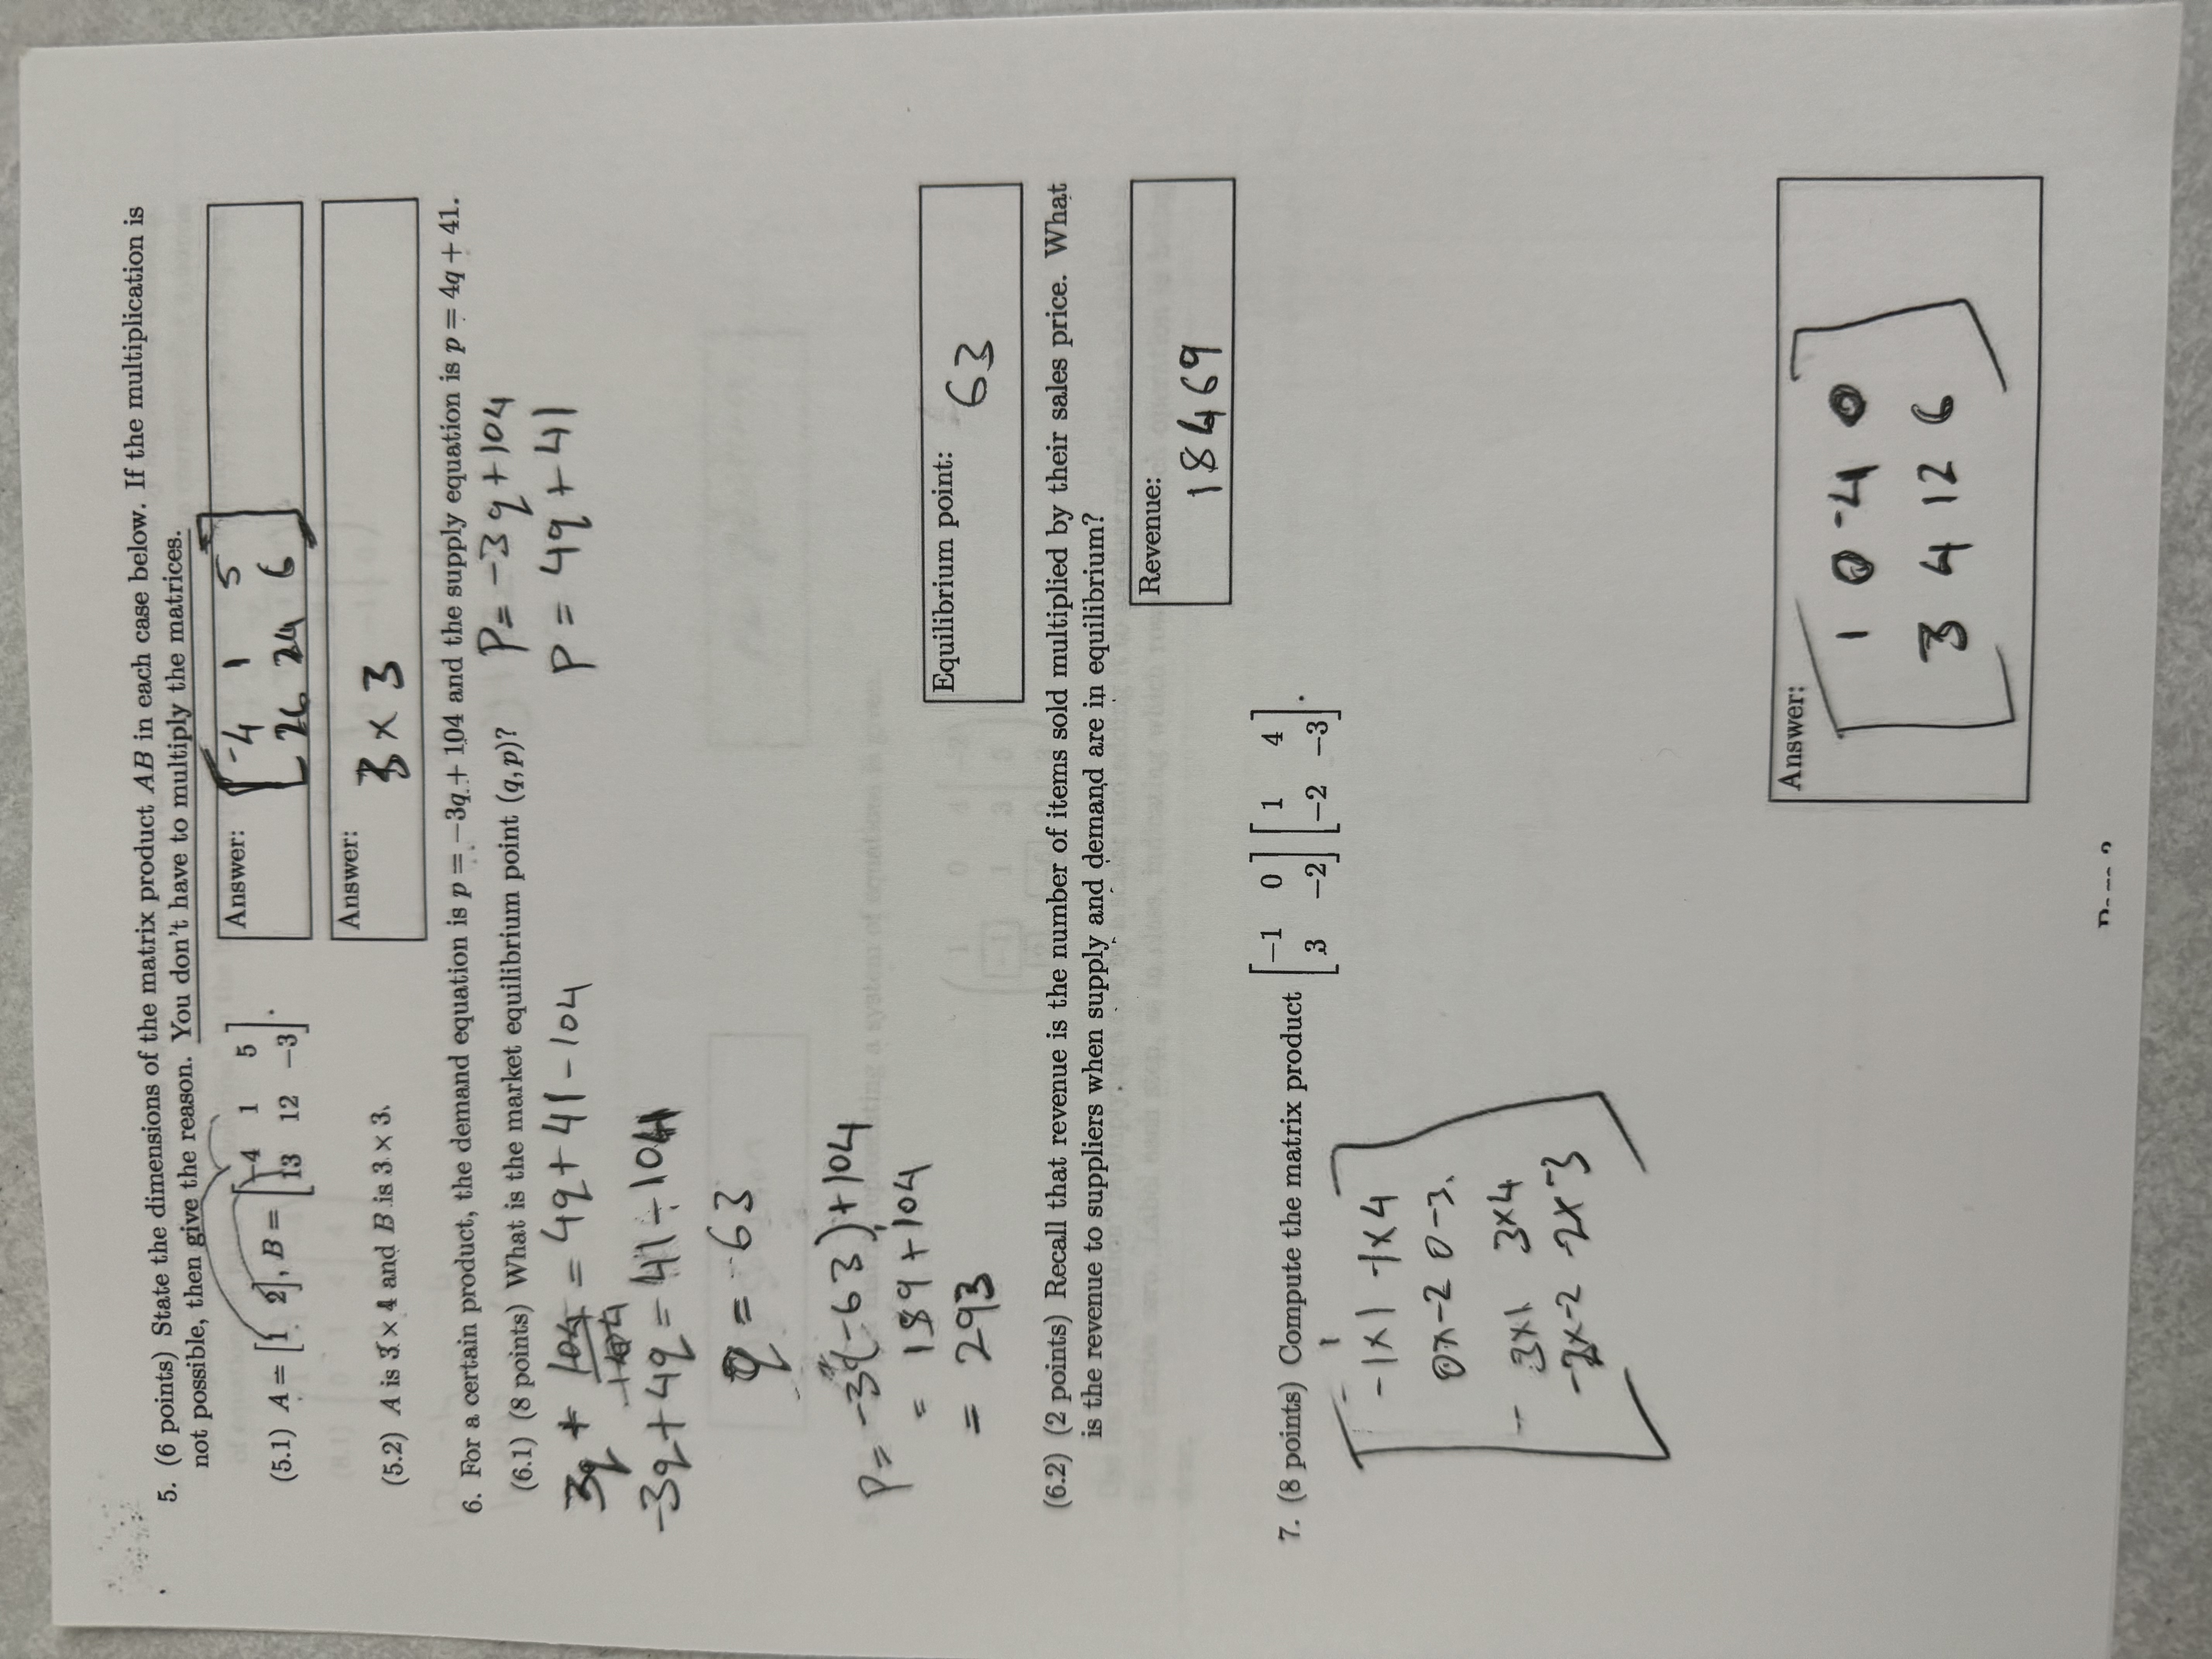 5. (6 points) State the dimensions of the matrix product AB in each case below. If the multiplication is
not possible, then give the reason. You don't have to multiply the matrices.
(5.1) A = [1 2], B = [-4 1 5
13 12 -3].
Answer:
[-4 1 5
26 24 6]
(5.2) A is 3 × 4 and B is 3 × 3.
Answer:
3 × 3
6. For a certain product, the demand equation is p = −3q + 104 and the supply equation is p = 4q + 41.
(6.1) (8 points) What is the market equilibrium point (q, p)?
P = -3q + 104
P = 4q + 41
3q + 104 = 4q + 41 - 104
-104
-3q + 4q = 41 ÷ 104
q = -63
P = -3(-63) + 104
= 189 + 104
= 293
Equilibrium point:
63
(6.2) (2 points) Recall that revenue is the number of items sold multiplied by their sales price. What
is the revenue to suppliers when supply and demand are in equilibrium?
Revenue:
18469
7. (8 points) Compute the matrix product [−1 0
3 −2] [1 4
−2 −3].
-1×1 -1×4
0×-2 0-3
3×1 3×4
-2×-2 -2×-3
Answer:
1 0 -4 0
3 4 12 6